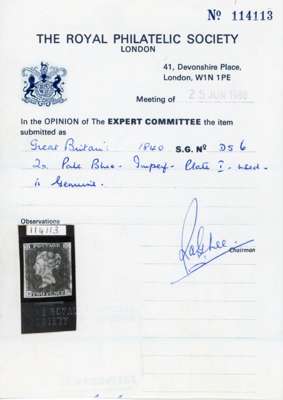 Nº 114113
THE ROYAL PHILATELIC SOCIETY
LONDON
41, Devonshire Place,
London, W1N 1PE
Meeting of 25 JUN 1980
In the OPINION of The EXPERT COMMITTEE the item
submitted as
Great Britain: 1840 S.G. Nº DS6
2d. Pale Blue. Imperf. Plate I. used
is Genuine.
Observations
114113
POSTAGE
TWO PENCE
THE ROYAL
SOCIETY
Chairman